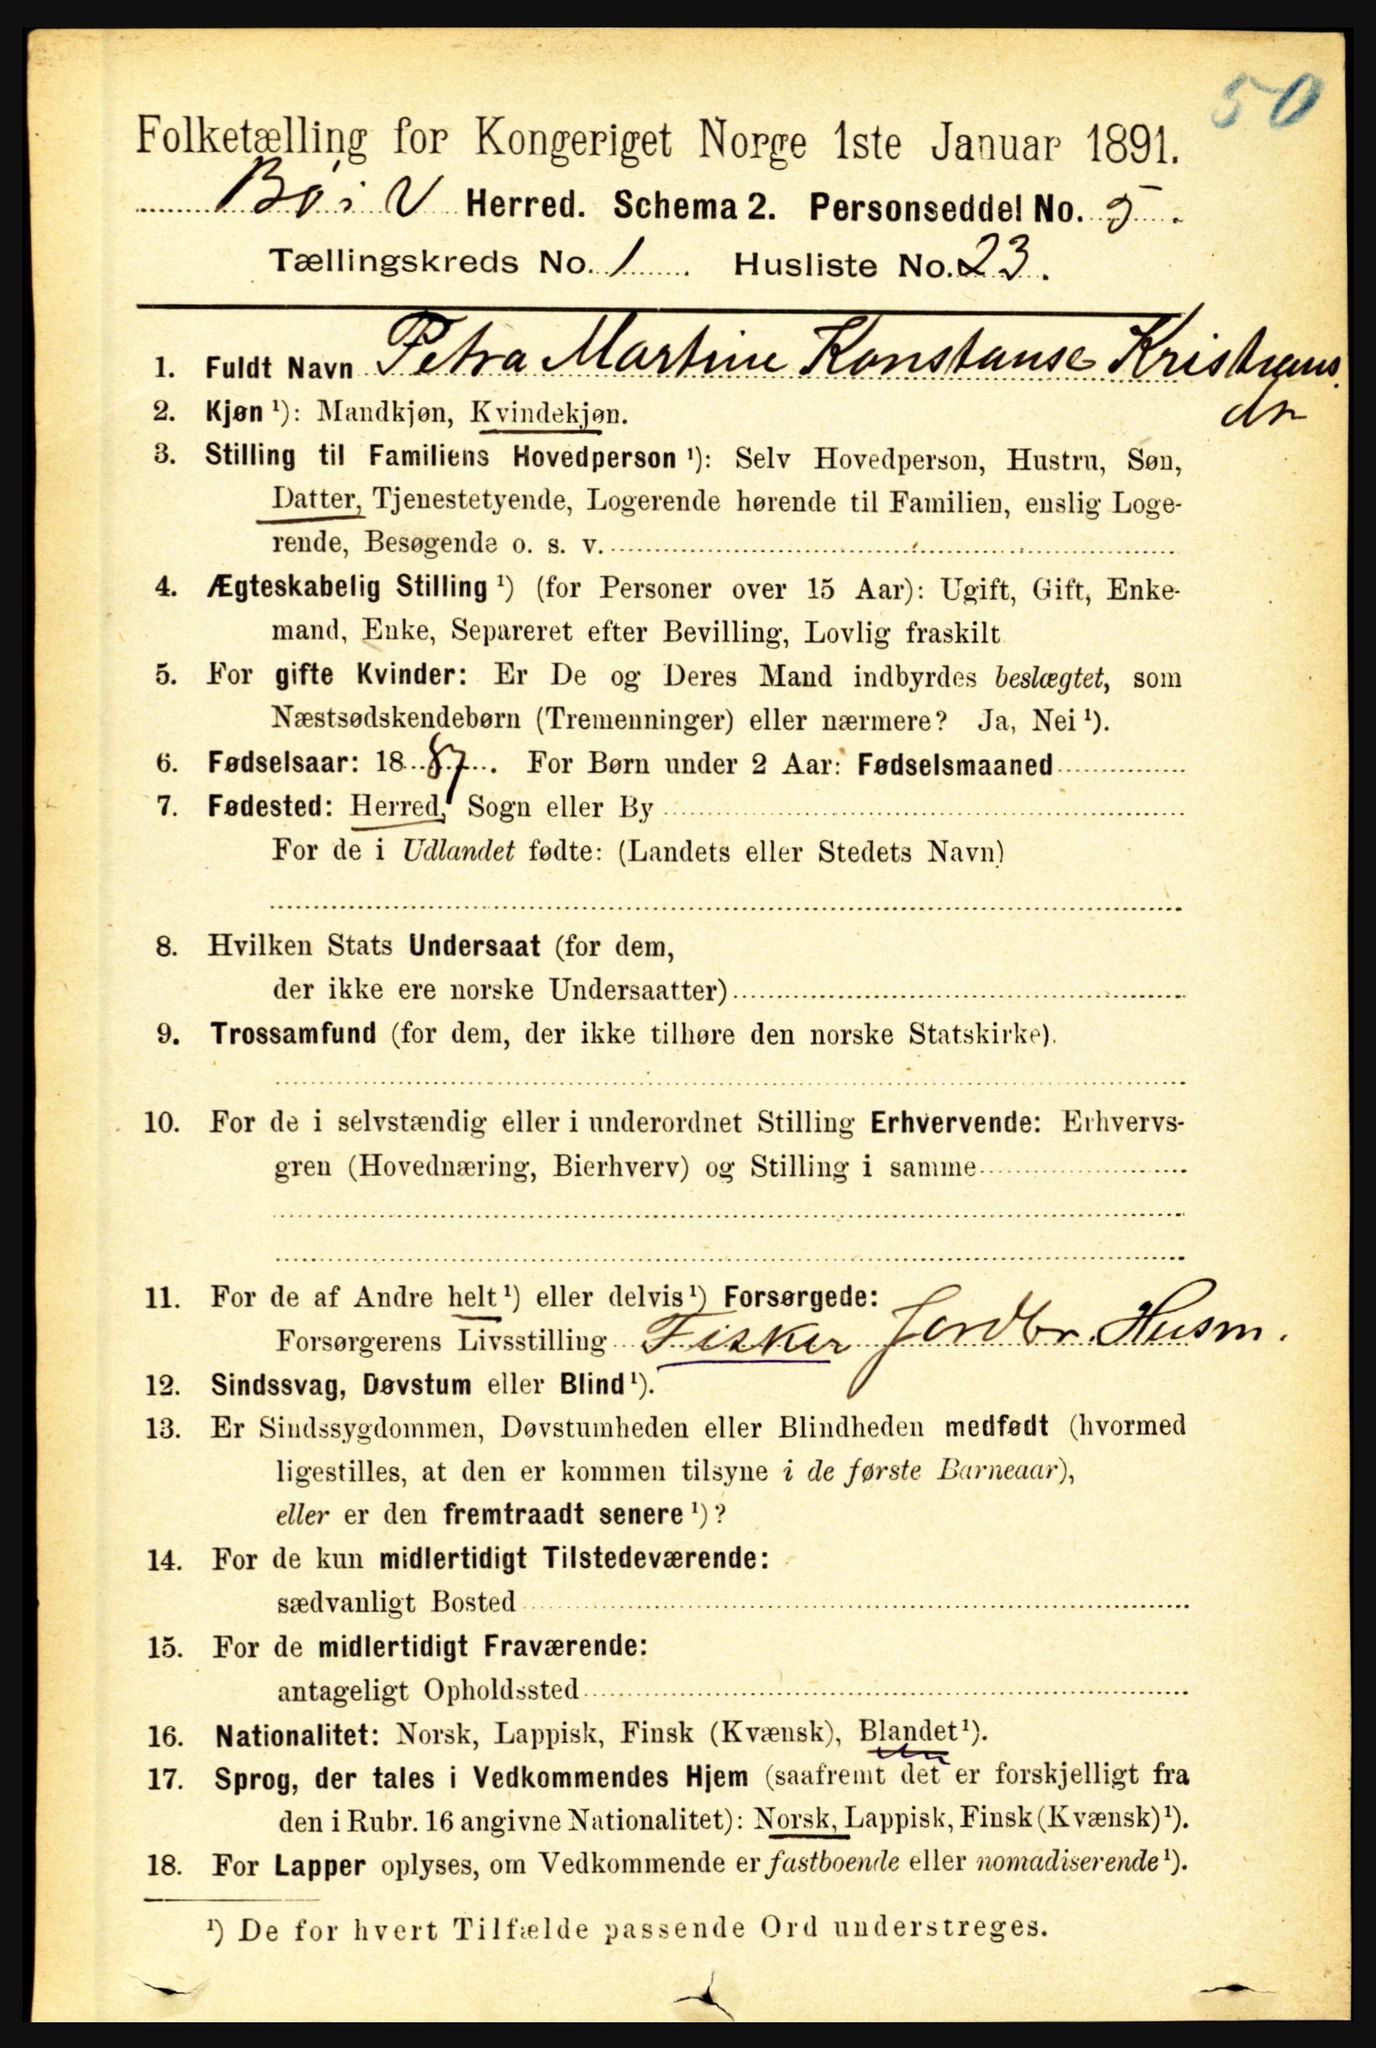 50
Folketælling for Kongeriget Norge 1ste Januar 1891.
Bø i V Herred. Schema 2. Personseddel No. 5.
Tællingskreds No. 1. Husliste No. 23.
1. Fuldt Navn Petra Martine Konstanse Kristians
dr
2. Kjøn ¹): Mandkjøn, Kvindekjøn.
3. Stilling til Familiens Hovedperson ¹): Selv Hovedperson, Hustru, Søn,
Datter, Tjenestetyende, Logerende hørende til Familien, enslig Loge-
rende, Besøgende o. s. v.
4. Ægteskabelig Stilling ¹) (for Personer over 15 Aar): Ugift, Gift, Enke-
mand, Enke, Separeret efter Bevilling, Lovlig fraskilt
5. For gifte Kvinder: Er De og Deres Mand indbyrdes beslægtet, som
Næstsødskendebørn (Tremenninger) eller nærmere? Ja, Nei ¹).
6. Fødselsaar: 1887. For Børn under 2 Aar: Fødselsmaaned
7. Fødested: Herred, Sogn eller By
For de i Udlandet fødte: (Landets eller Stedets Navn)
8. Hvilken Stats Undersaat (for dem,
der ikke ere norske Undersaatter)
9. Trossamfund (for dem, der ikke tilhøre den norske Statskirke).
10. For de i selvstændig eller i underordnet Stilling Erhvervende: Erhvervs-
gren (Hovednæring, Bierhverv) og Stilling i samme
11. For de af Andre helt ¹) eller delvis ¹) Forsørgede:
Forsørgerens Livsstilling Fisker Jordbr. Husm.
12. Sindssvag, Døvstum eller Blind ¹).
13. Er Sindssygdommen, Døvstumheden eller Blindheden medfødt (hvormed
ligestilles, at den er kommen tilsyne i de første Barneaar),
eller er den fremtraadt senere ¹)?
14. For de kun midlertidigt Tilstedeværende:
sædvanligt Bosted
15. For de midlertidigt Fraværende:
antageligt Opholdssted
16. Nationalitet: Norsk, Lappisk, Finsk (Kvænsk), Blandet ¹).
17. Sprog, der tales i Vedkommendes Hjem (saafremt det er forskjelligt fra
den i Rubr. 16 angivne Nationalitet): Norsk, Lappisk, Finsk (Kvænsk) ¹).
18. For Lapper oplyses, om Vedkommende er fastboende eller nomadiserende ¹).
¹) De for hvert Tilfælde passende Ord understreges.